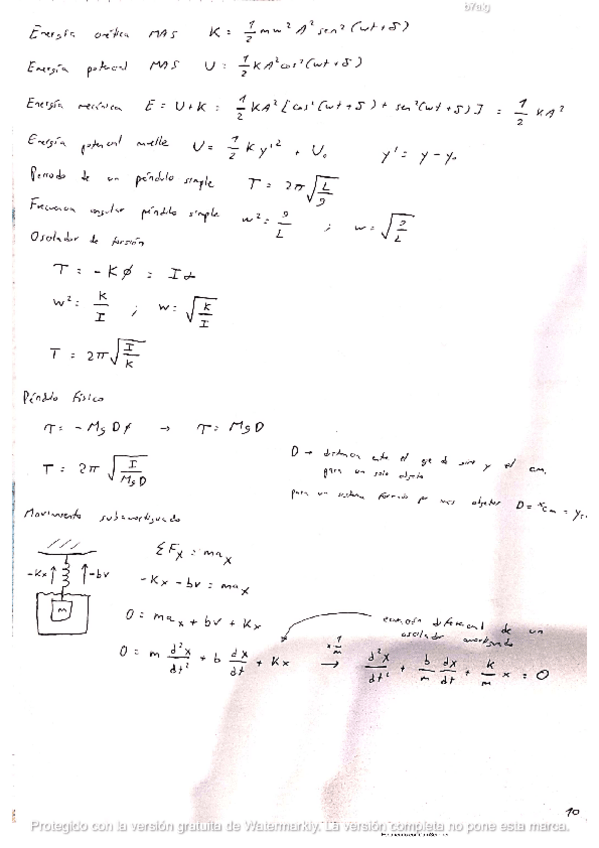 b7aig
Energía cinética MAS K = 1/2 mw² A² sen²(wt + δ)
Energía potencial MAS U = 1/2 KA² cos²(wt + δ)
Energía mecánica E = U+K = 1/2 KA² [cos²(wt + δ) + sen²(wt + δ)] = 1/2 KA²
Energía potencial muelle U = 1/2 K y'² + U₀ y' = y - y₀
Periodo de un péndulo simple T = 2π√(L/g)
Frecuencia angular péndulo simple w² = g/L ; w = √(g/L)
Oscilador de torsión
τ = -Kφ = Iα
w² = K/I ; w = √(K/I)
T = 2π√(I/K)
Péndulo físico
τ = -MgDφ → τ = MgD
D → distancia entre el eje de giro y el cm.
para un solo objeto
T = 2π √(I/MgD)
para un sistema formado por más objetos D = x_cm = y
Movimiento subamortiguado
ΣFx = max
-Kx -bv
-Kx - bv = max
m
0 = max + bv + Kx
ecuación diferencial de un
oscilador amortiguado
0 = m d²x/dt² + b dx/dt + Kx ×1/m → d²x/dt² + b/m dx/dt + K/m x = 0
10
Protegido con la versión gratuita de Watermarkly. La versión completa no pone esta marca.